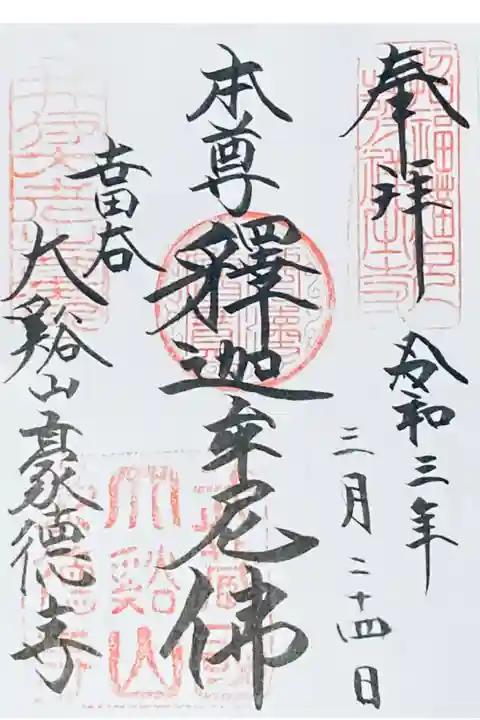 奉拝
令和三年
三月二十四日
本尊
釋迦牟尼佛
世田谷
大谿山豪德寺
大谿山